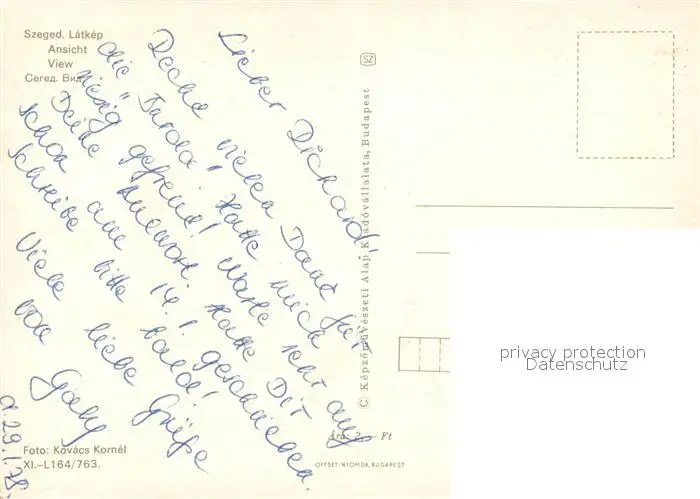 Szeged. Látkép
Ansicht
View
Сегед. Вид
SZ
Lieber Richard!
Recht vielen Dank für
die Hatte mich
riesig gefreut! Warte sehr auf
Deine Antwort. Hatte Dir
schon am 14.1. geschrieben.
Schreibe bitte bald!
Viele liebe Grüße
von Gaby
d. 29.1.78
© Képzőművészeti Alap Kiadóvállalata, Budapest
Ára: 2,— Ft
Foto: Kovács Kornél
XI.–L164/763.
OFFSET-NYOMDA, BUDAPEST
privacy protection
Datenschutz